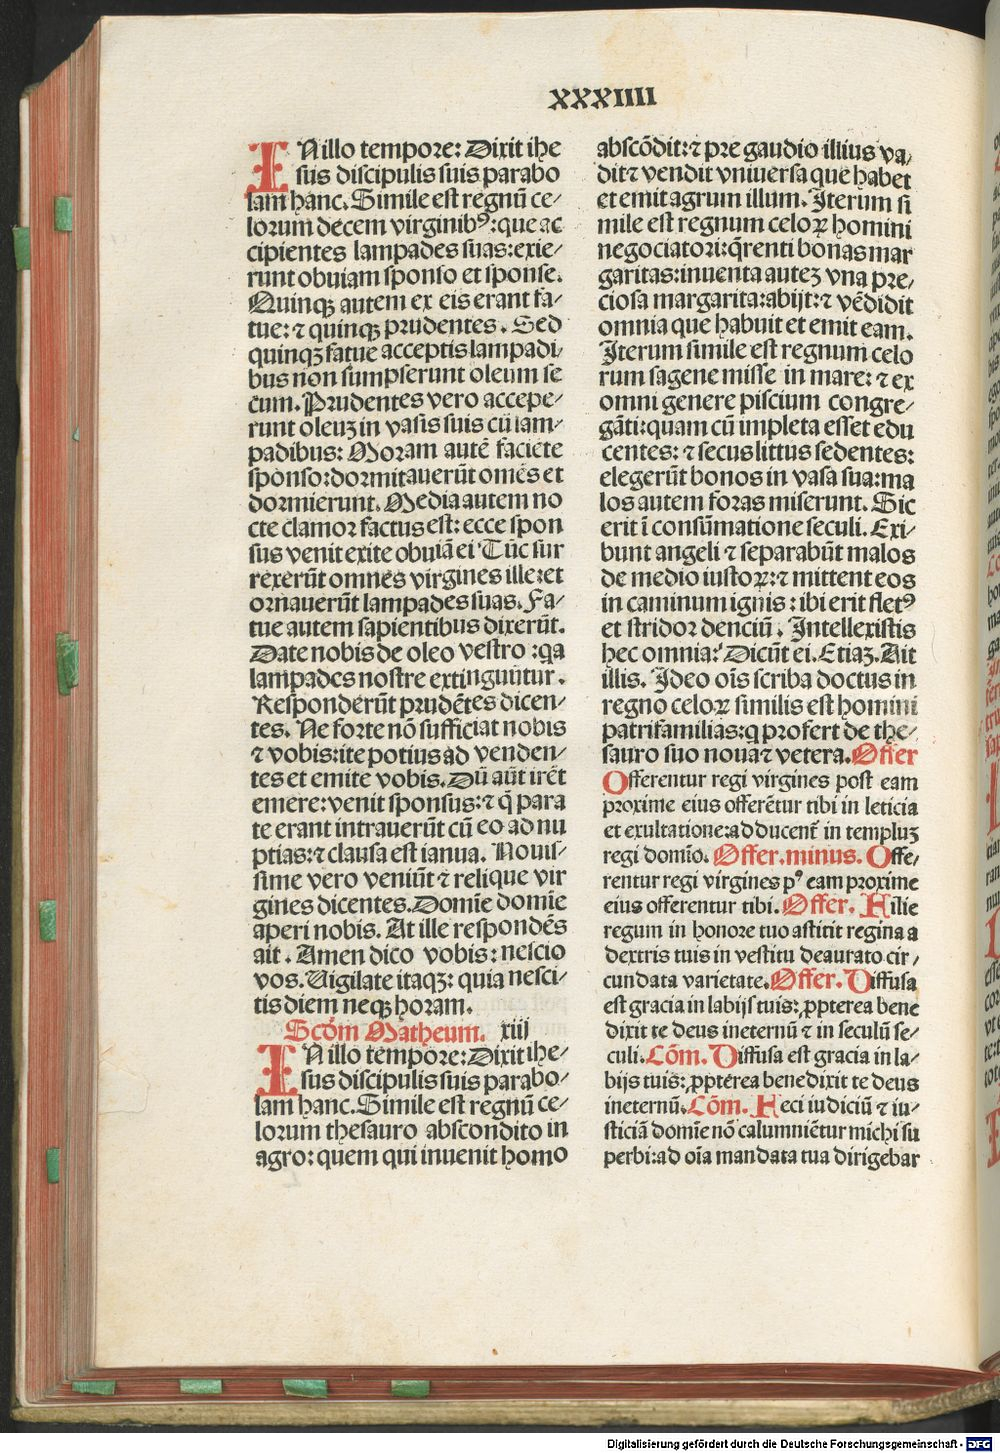 XXXIIII
IN illo tempore: Dixit ihe
sus discipulis suis parabo
lam hanc. Simile est regnū ce⸗
lorum decem virginibꝰ: que ac
cipientes lampades suas: exie⸗
runt obuiam sponso et sponse.
Quinqꝫ autem ex eis erant fa⸗
tue: ⁊ quinqꝫ prudentes. Sed
quinqꝫ fatue acceptis lampadi⸗
bus non sumpserunt oleum se
cum. Prudentes vero accepe⸗
runt oleuꝫ in vasis suis cū lam⸗
padibus: Moram autē faciēte
sponso: dormitauerūt omēs et
dormierunt. Media autem no
cte clamor factus est: ecce spon
sus venit exite obuiā ei Tūc sur
rexerūt omnes virgines ille: et
ornauerūt lampades suas. Fa⸗
tue autem sapientibus dixerūt.
Date nobis de oleo vestro: qa
lampades nostre extinguūtur.
Responderūt prudētes dicen⸗
tes. Ne forte nō sufficiat nobis
⁊ vobis: ite potius ad venden⸗
tes et emite vobis. Dū aūt irēt
emere: venit sponsus: ⁊ q̄ para
te erant intrauerūt cū eo ad nu
ptias: ⁊ clausa est ianua. Nouis⸗
sime vero veniūt ⁊ relique vir
gines dicentes. Domīe domīe
aperi nobis. At ille respondēs
ait. Amen dico vobis: nescio
vos. Uigilate itaqꝫ: quia nesci⸗
tis diem neqꝫ horam.
Scdm̄ Matheum. xiij
IN illo tempore: Dixit ihe⸗
sus discipulis suis parabo⸗
lam hanc. Simile est regnū ce⸗
lorum thesauro abscondito in
agro: quem qui inuenit homo
abscōdit: ⁊ pre gaudio illius va⸗
dit ⁊ vendit vniuersa que habet
et emit agrum illum. Iterum si
mile est regnum celoꝝ homini
negociatori: q̄renti bonas mar
garitas: inuenta autez vna pre⸗
ciosa margarita: abijt: ⁊ vēdidit
omnia que habuit et emit eam.
Iterum simile est regnum celo
rum sagene misse in mare: ⁊ ex
omni genere piscium congre⸗
gāti: quam cū impleta esset edu
centes: ⁊ secus littus sedentes:
elegerūt bonos in vasa sua: ma
los autem foras miserunt. Sic
erit ī consūmatione seculi. Exi⸗
bunt angeli ⁊ separabūt malos
de medio iustoꝝ: ⁊ mittent eos
in caminum ignis: ibi erit fletꝰ
et stridor denciū. Intellexistis
hec omnia? Dicūt ei. Etiaꝫ. Ait
illis. Ideo oīs scriba doctus in
regno celoꝝ similis est homini
patrifamilias: q profert de the⸗
sauro suo noua ⁊ vetera. Offer
Offerentur regi virgines post eam
proxime eius offerētur tibi in leticia
et exultatione: adducent̄ in templuꝫ
regi domīo. Offer. minus. Offe⸗
rentur regi virgines pꝰ eam proxime
eius offerentur tibi. Offer. Filie
regum in honore tuo astitit regina a
dextris tuis in vestitu deaurato cir⸗
cundata varietate. Offer. Diffusa
est gracia in labijs tuis: ꝓpterea bene
dixit te deus ineternū ⁊ in seculū se⸗
culi. Cōm. Diffusa est gracia in la⸗
bijs tuis: ꝓpterea benedixit te deus
ineternū. Cōm. Feci iudiciū ⁊ iu⸗
sticiā domīe nō calumniētur michi su
perbi: ad oīa mandata tua dirigebar
Digitalisierung gefördert durch die Deutsche Forschungsgemeinschaft - DFG